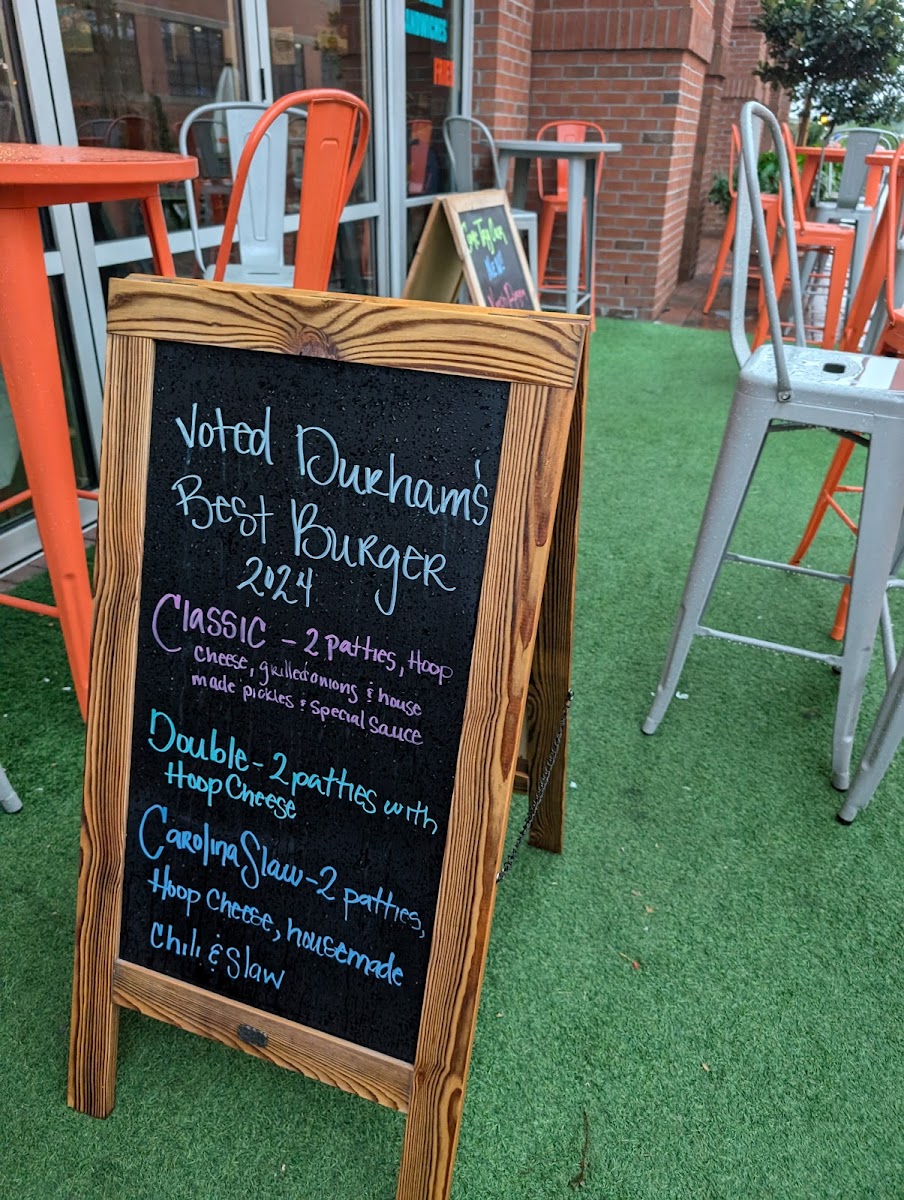 SANDWICHES
FRIES
NEW!
Voted Durham's
Best Burger
2024
Classic - 2 patties, Hoop
Cheese, grilled onions & house
made pickles & special sauce
Double - 2 patties with
Hoop Cheese
Carolina Slaw - 2 patties,
Hoop Cheese, housemade
Chili & Slaw